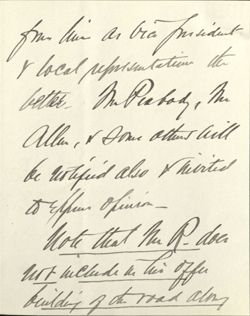 from him as Vice President
& local representative the
better. Mr Peabody, Mr
Allen, & some others will
be notified also & invited
to express opinion —
Note that Mr R- does
not include in his offer
building of the road along